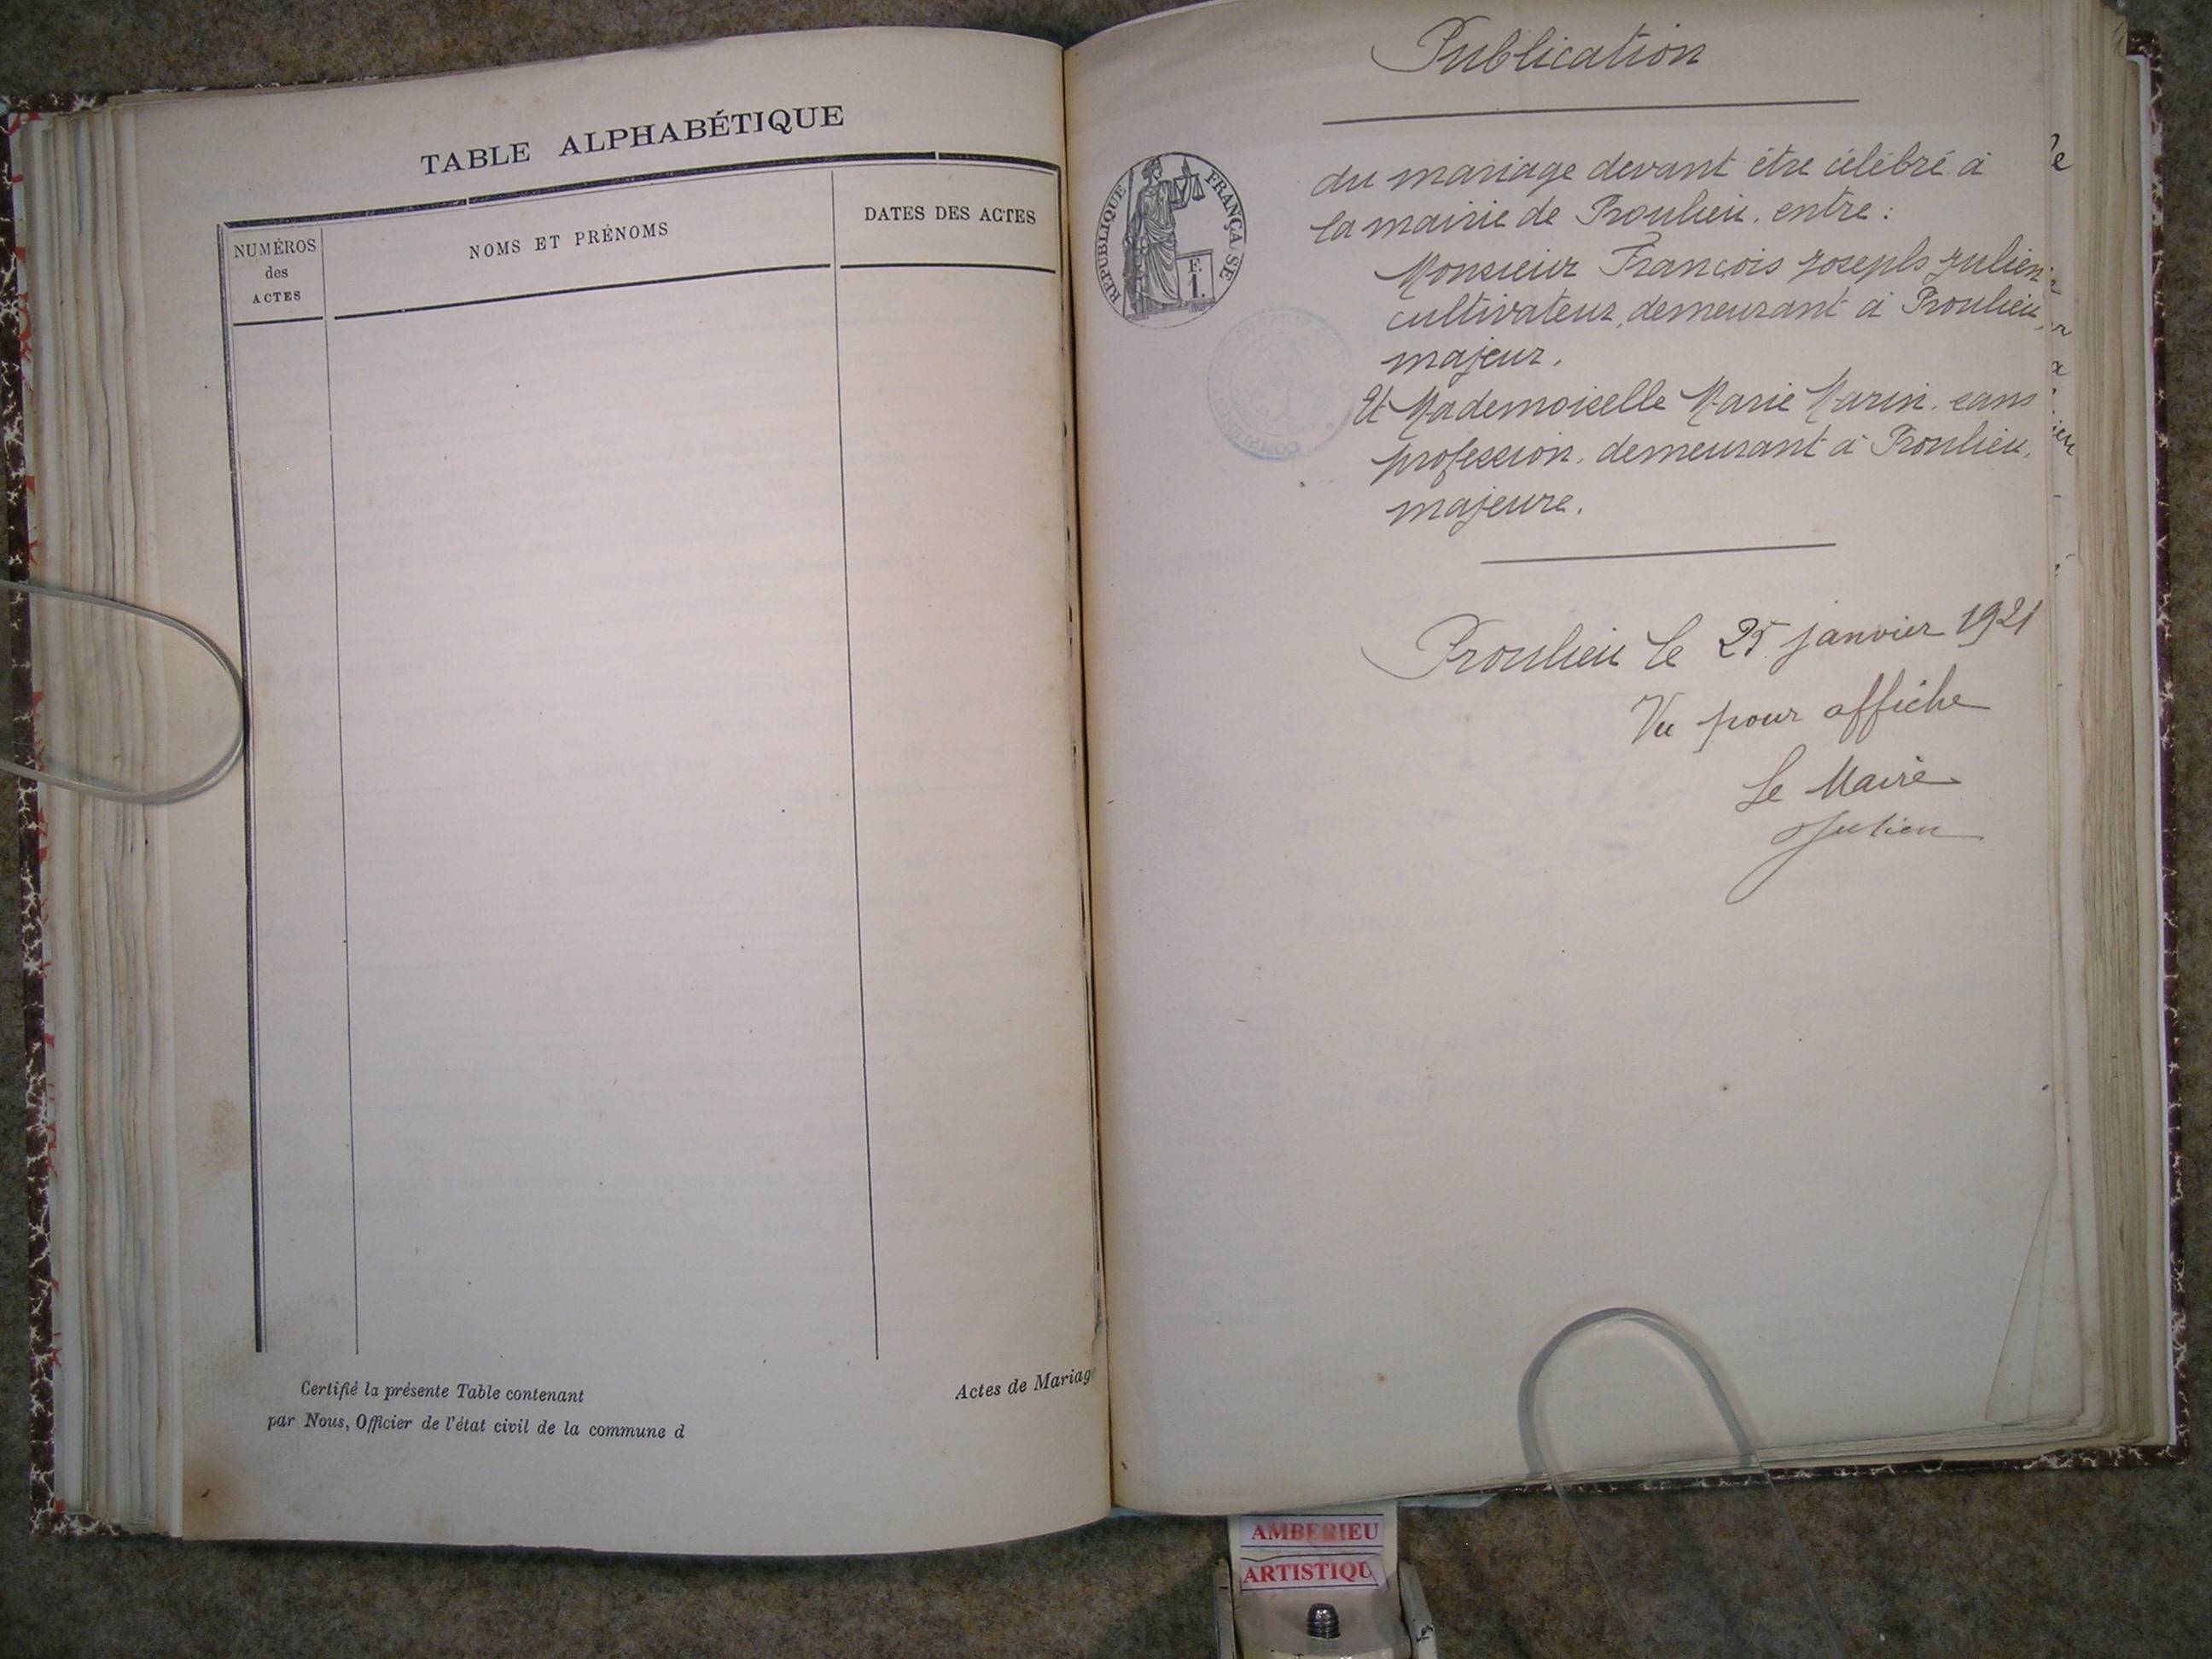 TABLE ALPHABÉTIQUE
NUMÉROS
des
ACTES
NOMS ET PRÉNOMS
DATES DES ACTES
Certifié la présente Table contenant
par Nous, Officier de l'état civil de la commune d
Actes de Mariag
Publication
REPUBLIQUE FRANÇAISE
F.
1.
du mariage devant être célébré à
la mairie de Proulieu, entre :
Monsieur François Joseph Julien
cultivateur, demeurant à Proulieu,
majeur.
Et Mademoiselle Marie Marin, sans
profession, demeurant à Proulieu,
majeure.
Proulieu le 25 janvier 1921
Vu pour affiche
Le Maire
Julien
AMBERIEU
ARTISTIQU